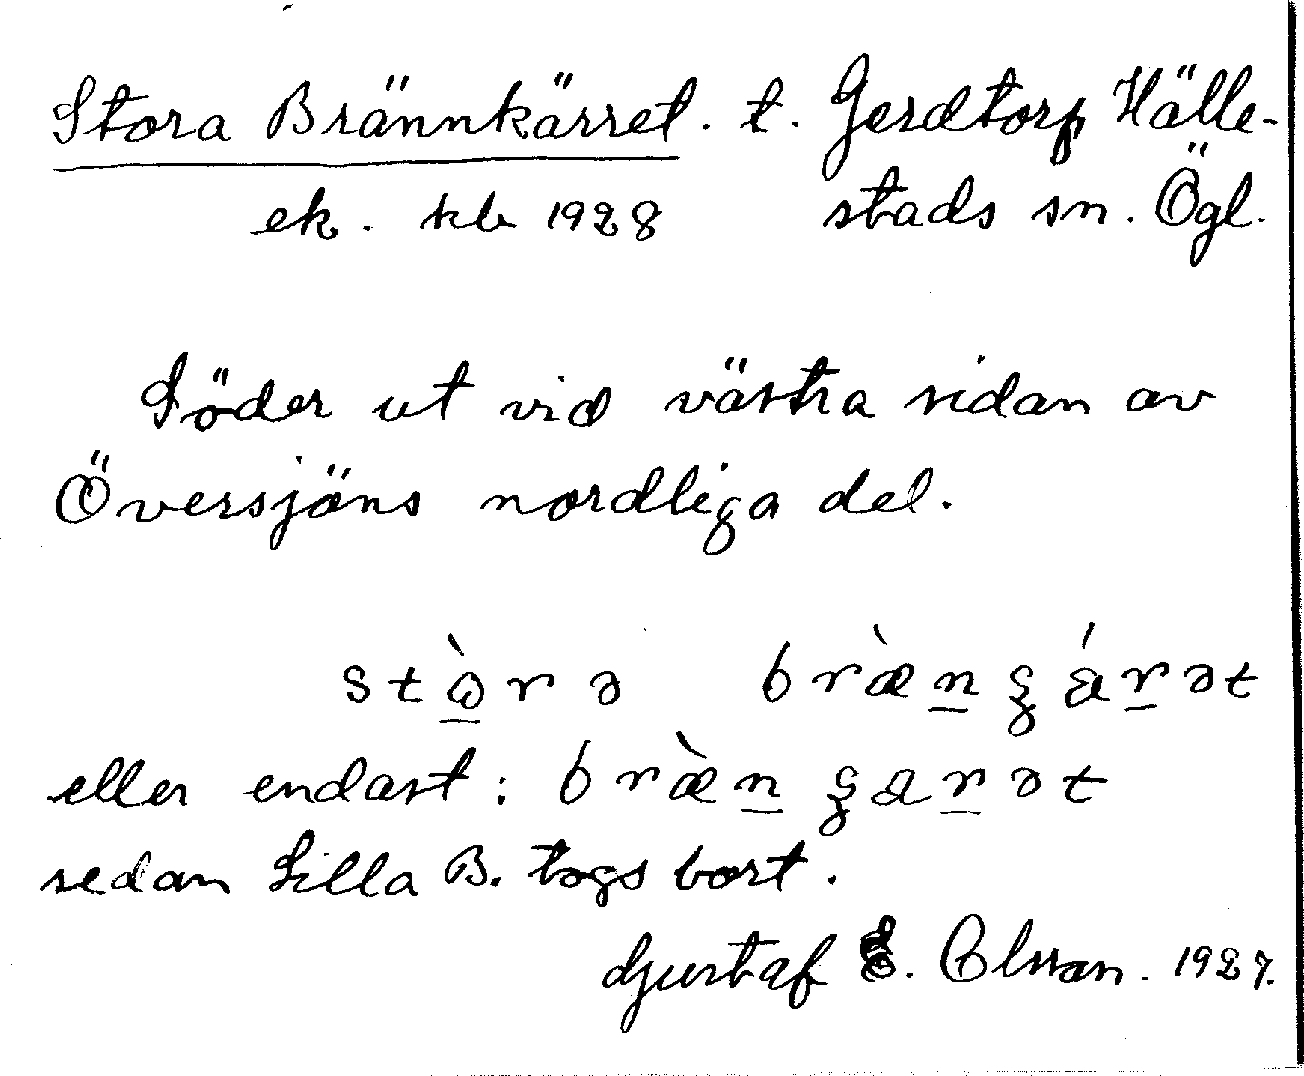 Stora Brännkärret. t. Gerdtorp Hälle-
ek. kb 1928 stads sn. Ögl.
Söder ut vid västra sidan av
Översjöns nordliga del.
stò̲rə bræ̀n̲ɕǽr̲ət
eller endast: bræ̀n̲ɕær̲ət
sedan Lilla B. togs bort.
Gustaf E. Olsson. 1927.